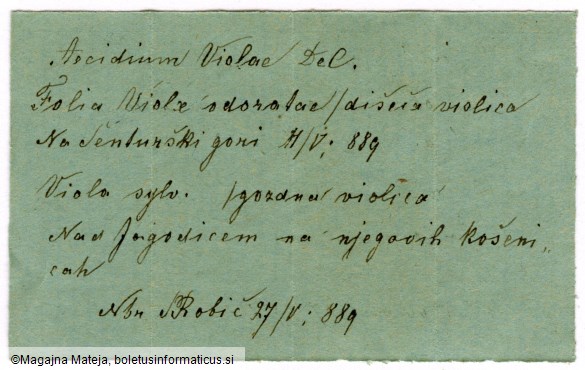 Aecidium Violae DeC.
Folia Violæ odoratae /dišeča violica
Na Šenturški gori 11/V; 889
Viola sylv. /gozdna violica
Nad Jagodicem na njegovih košeni„
cah
Nbr SRobič 27/V; 889
©Magajna Mateja, boletusinformaticus.si